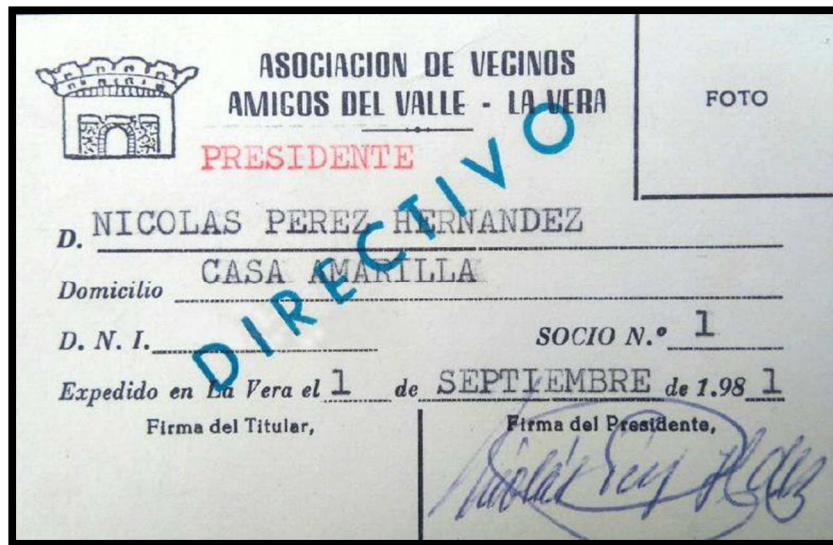 ASOCIACION DE VECINOS
AMIGOS DEL VALLE - LA VERA
FOTO
PRESIDENTE
DIRECTIVO
D. NICOLAS PEREZ HERNANDEZ
Domicilio CASA AMARILLA
D. N. I.
SOCIO N.º 1
Expedido en La Vera el 1 de SEPTIEMBRE de 1.98 1
Firma del Titular,
Firma del Presidente,
Nicolás